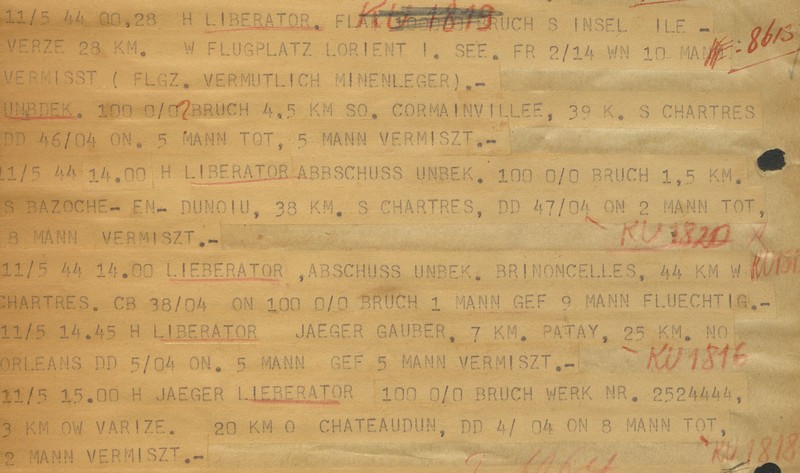 11/5 44 00,28 H LIBERATOR. FLA BRUCH S INSEL ILE -
KU 1819
VERZE 28 KM. W FLUGPLATZ LORIENT I. SEE. FR 2/14 WN 10 MANN
: 8613
VERMISST ( FLGZ. VERMUTLICH MINENLEGER).-
UNBDEK. 100 0/0 ? BRUCH 4,5 KM SO. CORMAINVILLEE, 39 K. S CHARTRES
DD 46/04 ON. 5 MANN TOT, 5 MANN VERMISZT.-
11/5 44 14.00 H LIBERATOR ABBSCHUSS UNBEK. 100 0/0 BRUCH 1,5 KM.
S BAZOCHE- EN- DUNOIU, 38 KM. S CHARTRES, DD 47/04 ON 2 MANN TOT,
8 MANN VERMISZT.-
KU 1820
11/5 44 14.00 LIEBERATOR ,ABSCHUSS UNBEK. BRINONCELLES, 44 KM W
CHARTRES. CB 38/04 ON 100 0/0 BRUCH 1 MANN GEF 9 MANN FLUECHTIG.-
11/5 14.45 H LIBERATOR JAEGER GAUBER, 7 KM. PATAY, 25 KM. NO
ORLEANS DD 5/04 ON. 5 MANN GEF 5 MANN VERMISZT.-
KU 1816
11/5 15.00 H JAEGER LIEBERATOR 100 0/0 BRUCH WERK NR. 2524444,
3 KM OW VARIZE. 20 KM O CHATEAUDUN, DD 4/ 04 ON 8 MANN TOT,
2 MANN VERMISZT.-
KU 1818